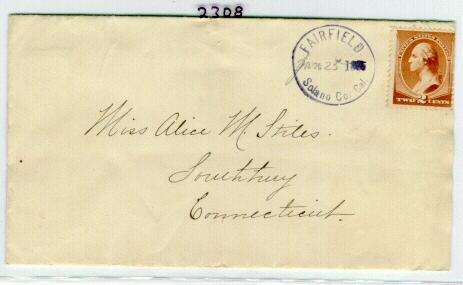 2308
FAIRFIELD
Jan 25 1885
Solano Co. Cal.
TWO 2 CENTS
Miss Alice M. Stiles.
Southbury
Connecticut.